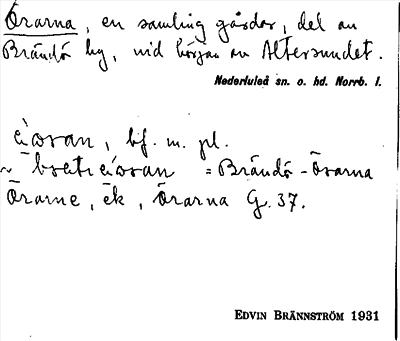 Örarna, en samling gårdar, del av
Brändö by, vid början av Altersundet.
Nederluleå sn. o. hd. Norrb. l.
bf. m. pl.
= Brändö-Örarna
Örarne, ek, Örarna G. 37.
EDVIN BRÄNNSTRÖM 1931